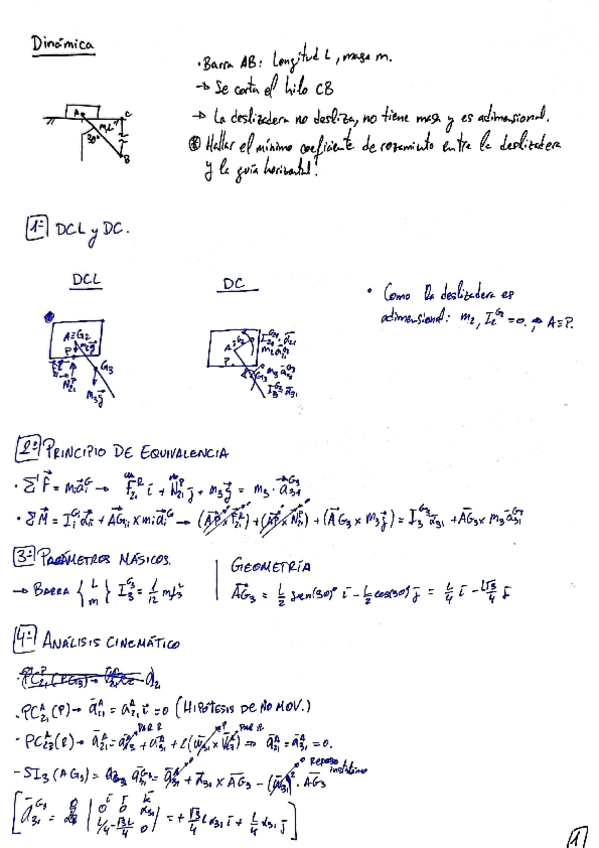 Dinámica
· Barra AB: Longitud L, masa m.
→ Se corta el hilo CB
→ La deslizadera no desliza, no tiene masa y es adimensional.
⊛ Hallar el mínimo coeficiente de rozamiento entre la deslizadera
y la guía horizontal!
A
C
30°
B
1º DCL y DC.
DCL
DC
• Como la deslizadera es
adimensional: m₂, I₂^G₂ = 0. → A≡P.
A≡G₂
P
G₃
N₂₁
m₃g
2º PRINCIPIO DE EQUIVALENCIA
· ΣF = m a^G → F₂₁^R i + N₂₁^P j + m₃g = m₃ · a₃₁^G₃
· ΣM = I^G α + AG × m a^G → (AP × F₂₁^R) + (AP × N₂₁^P) + (AG₃ × m₃g) = I₃^G₃ α₃₁ + AG₃ × m₃ a₃₁^G₃
3º PARÁMETROS MÁSICOS.
→ BARRA { L m } I₃^G₃ = 1/12 m L²
GEOMETRÍA
AG₃ = L/2 sen(30)º i - L/2 cos(30) j = L/4 i - L√3/4 j
4º ANÁLISIS CINEMÁTICO
· PC₂₁^A (P) → a₂₁^A = a₂₁^A i = 0 (HIPÓTESIS DE NO MOV.)
PAR R.
PAR R.
⇒ a₂₁^A = a₃₁^A = 0.
- SI3 (AG₃) = a₃₁^G₃ = a₃₁^A + α₃₁ × AG₃ - (ω₃₁)² · AG₃
Reposo
instantáneo
[ a₃₁^G₃ = | i j k 0 0 α₃₁ L/4 -√3L/4 0 | = + √3/4 L α₃₁ i + L/4 α₃₁ j ]
1